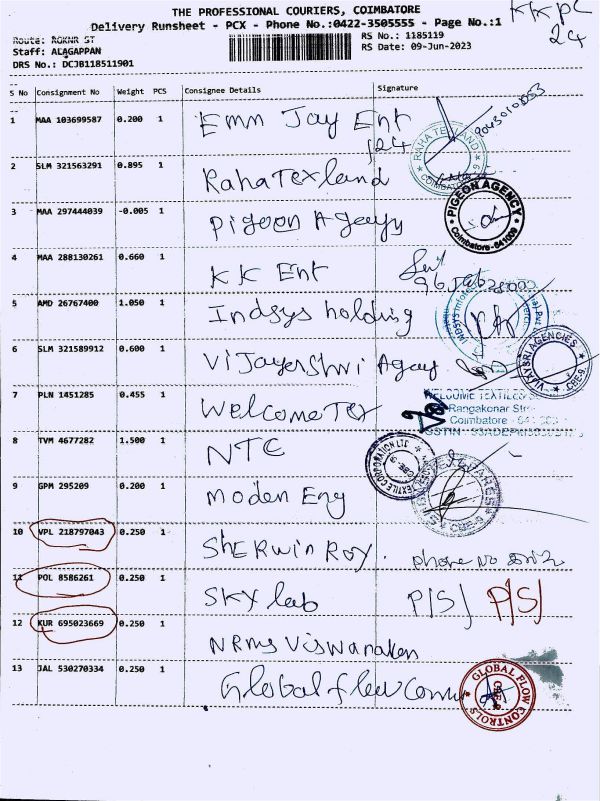 THE PROFESSIONAL COURIERS, COIMBATORE
Delivery Runsheet - PCX - Phone No.:0422-3505555 - Page No.:1
KKPL
24
Route: ROKNR ST
RS No.: 1185119
Staff: ALAGAPPAN
RS Date: 09-Jun-2023
DRS No.: DCJB118511901
S No Consignment No Weight PCS Consignee Details Signature
1 MAA 103699587 0.200 1 Emm Jay Ent
124
2 SLM 321563291 0.895 1 Raha Texland
RAHA TEXLAND
COIMBATORE
3 MAA 297444039 -0.005 1 Pigeon Agecyy
PIGEON AGENCY
Coimbatore-641009
4 MAA 288130261 0.660 1 KK Ent
5 AMD 26767400 1.050 1 Indsys holding
6 SLM 321589912 0.600 1 Vijayershri Agay
VIJAYSRI AGENCIES
CBE-9
7 PLN 1451285 0.455 1 Welcome Tex
WELCOME TEXTILES
Rangakonar Stre
Coimbatore - 641
8 TVM 4677282 1.500 1 NTC
TEXTILE CORPORATION LTD
9 GPM 295209 0.200 1 Moden Eng
CBE-9
10 VPL 218797043 0.250 1 Sherwin Roy. phone no
11 POL 8586261 0.250 1 Sky lab P/S/ P/S/
12 KUR 695023669 0.250 1 NRMS Viswanathen
13 JAL 530270334 0.250 1 Global flew Conm
GLOBAL FLOW CONTROLS
CBE-9